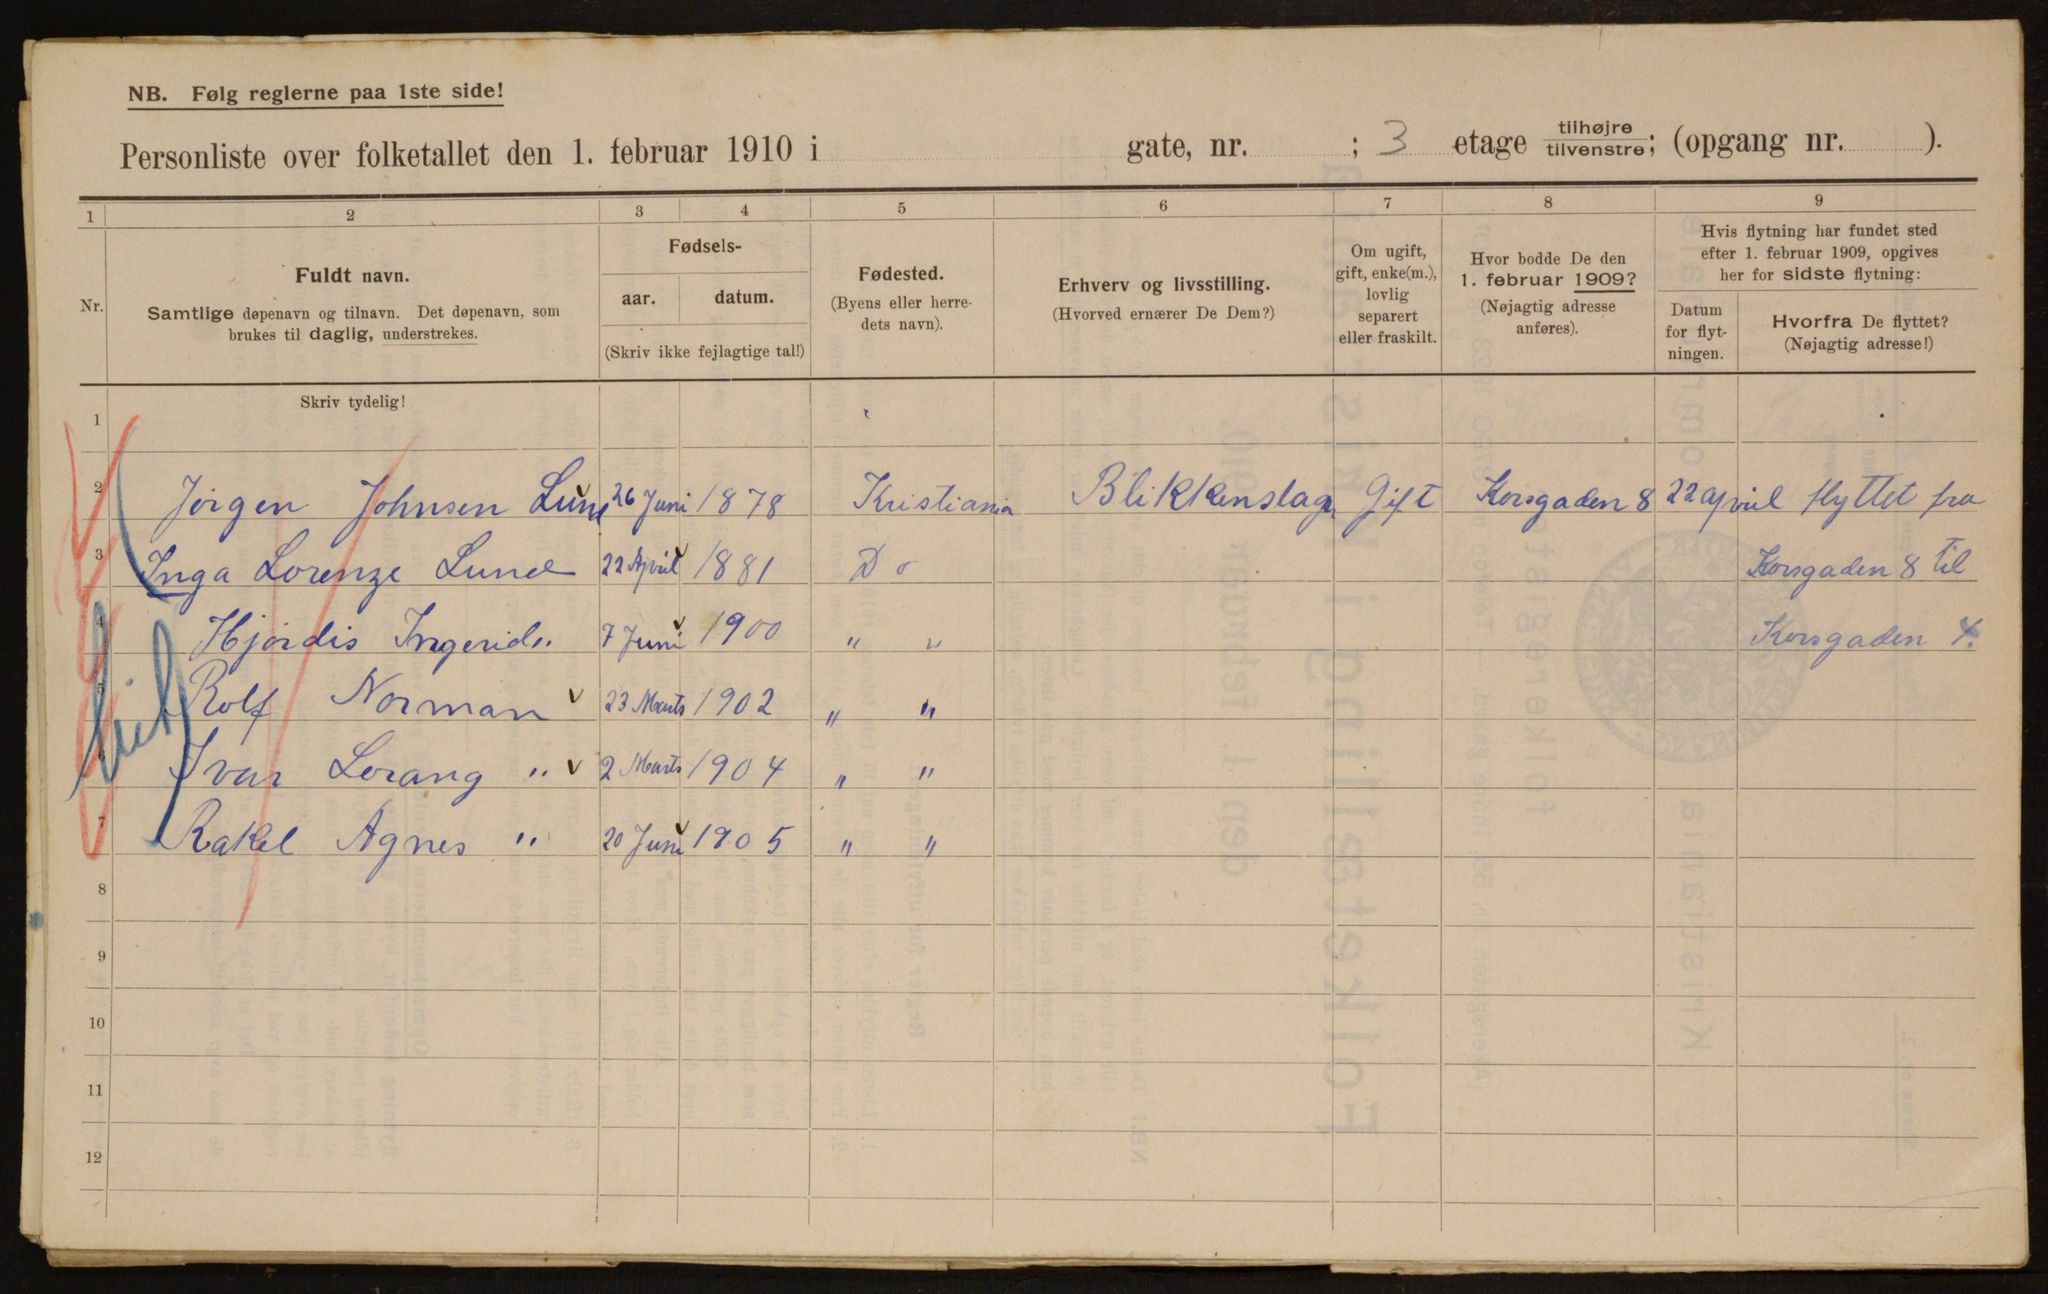 NB. Følg reglerne paa 1ste side!
Personliste over folketallet den 1. februar 1910 i gate, nr. ; 3 etage tilhøjre tilvenstre; (opgang nr. ).
1 2 3 4 5 6 7 8 9
Nr.
Fuldt navn.
Samtlige døpenavn og tilnavn. Det døpenavn, som
brukes til daglig, understrekes.
Fødsels-
aar. datum.
(Skriv ikke fejlagtige tal!)
Fødested.
(Byens eller herre-
dets navn).
Erhverv og livsstilling.
(Hvorved ernærer De Dem?)
Om ugift,
gift, enke(m.),
lovlig
separert
eller fraskilt.
Hvor bodde De den
1. februar 1909?
(Nøjagtig adresse
anføres).
Hvis flytning har fundet sted
efter 1. februar 1909, opgives
her for sidste flytning:
Datum
for flyt-
ningen.
Hvorfra De flyttet?
(Nøjagtig adresse!)
Skriv tydelig!
1
2 Jørgen Johnsen Lund 26 Juni 1878 Kristiania Blikkenslager Gift Korsgaden 8 22 april flyttet fra
3 Inga Lorenze Lund 22 April 1881 Do Korsgaden 8 til
4 Hjørdis Ingerid " 7 Juni 1900 " " Korsgaden 4.
5 Rolf Norman 23 Marts 1902 " "
6 Ivar Lorang " 2 Marts 1904 " "
7 Rakel Agnes " 20 Juni 1905 " "
8
9
10
11
12